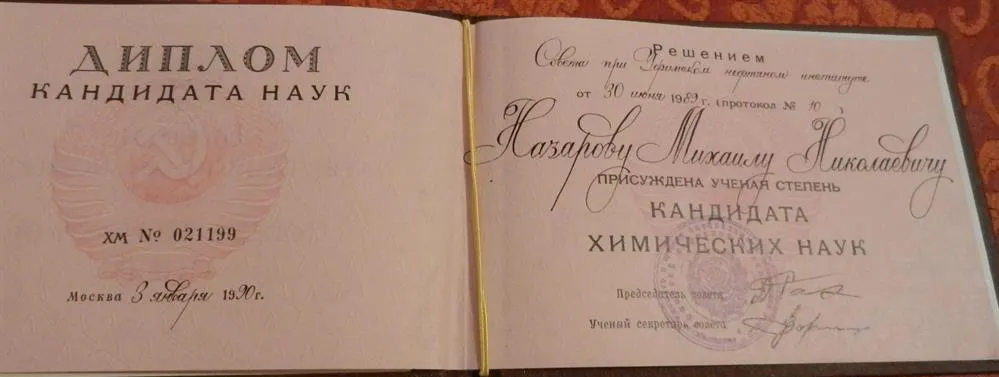 ДИПЛОМ
КАНДИДАТА НАУК
ХМ № 021199
Москва 3 января 1990 г.
Решением
Совета при Уфимском нефтяном институте
от 30 июня 1989 г. (протокол № 10)
Назарову Михаилу Николаевичу
ПРИСУЖДЕНА УЧЕНАЯ СТЕПЕНЬ
КАНДИДАТА
ХИМИЧЕСКИХ НАУК
Председатель совета
Ученый секретарь совета